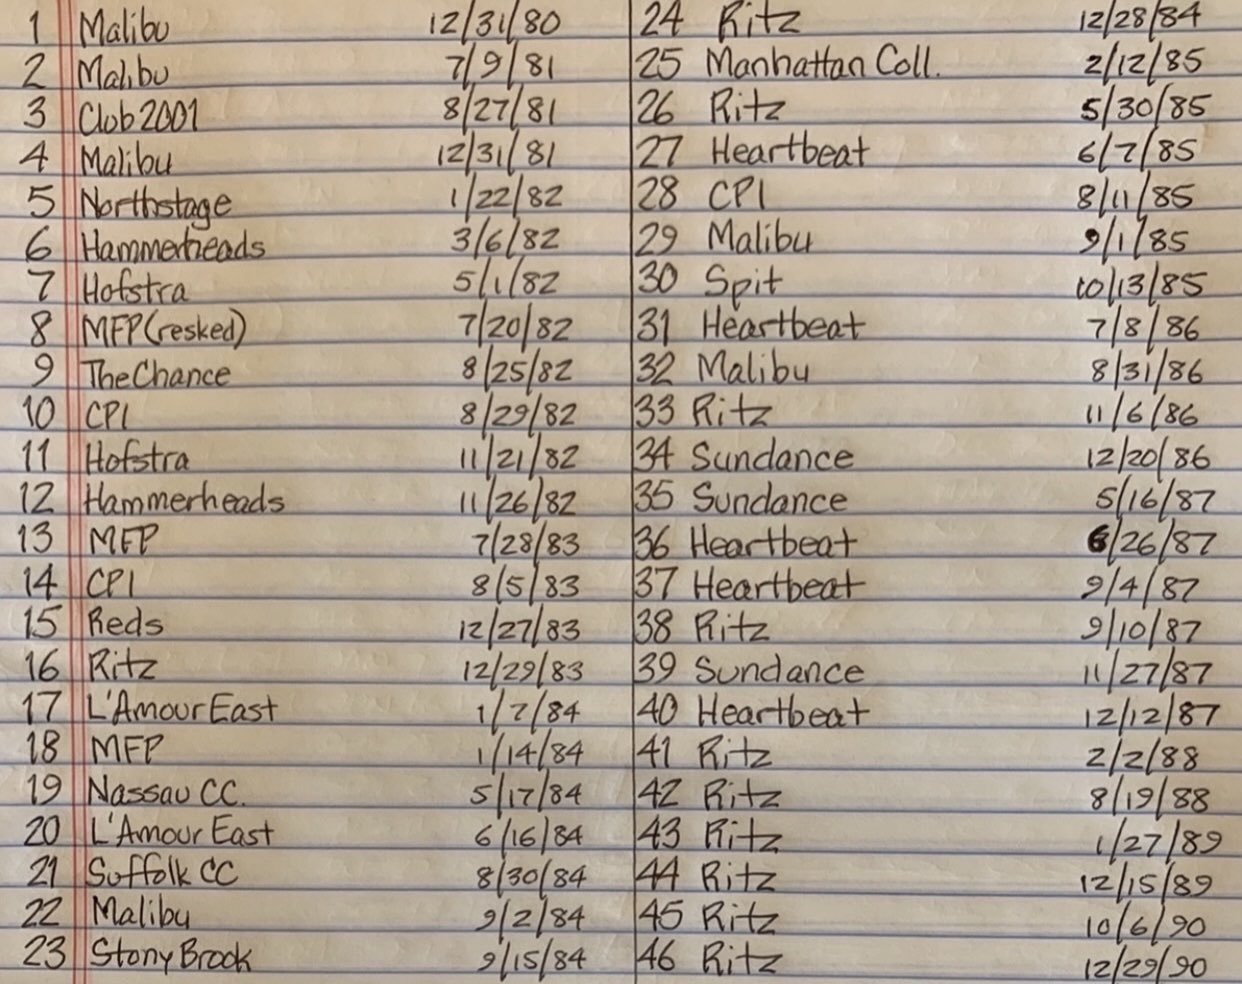 1 Malibu 12/31/80
2 Malibu 7/9/81
3 Club 2001 8/27/81
4 Malibu 12/31/81
5 Northstage 1/22/82
6 Hammerheads 3/6/82
7 Hofstra 5/1/82
8 MFP (resked) 7/20/82
9 The Chance 8/25/82
10 CPI 8/29/82
11 Hofstra 11/21/82
12 Hammerheads 11/26/82
13 MFP 7/28/83
14 CPI 8/5/83
15 Reds 12/27/83
16 Ritz 12/29/83
17 L'Amour East 1/7/84
18 MFP 1/14/84
19 Nassau CC. 5/17/84
20 L'Amour East 6/16/84
21 Suffolk CC 8/30/84
22 Malibu 9/2/84
23 Stony Brook 9/15/84
24 Ritz 12/28/84
25 Manhattan Coll. 2/12/85
26 Ritz 5/30/85
27 Heartbeat 6/7/85
28 CPI 8/11/85
29 Malibu 9/1/85
30 Spit 10/13/85
31 Heartbeat 7/8/86
32 Malibu 8/31/86
33 Ritz 11/6/86
34 Sundance 12/20/86
35 Sundance 5/16/87
36 Heartbeat 6/26/87
37 Heartbeat 9/4/87
38 Ritz 9/10/87
39 Sundance 11/27/87
40 Heartbeat 12/12/87
41 Ritz 2/2/88
42 Ritz 8/19/88
43 Ritz 1/27/89
44 Ritz 12/15/89
45 Ritz 10/6/90
46 Ritz 12/29/90